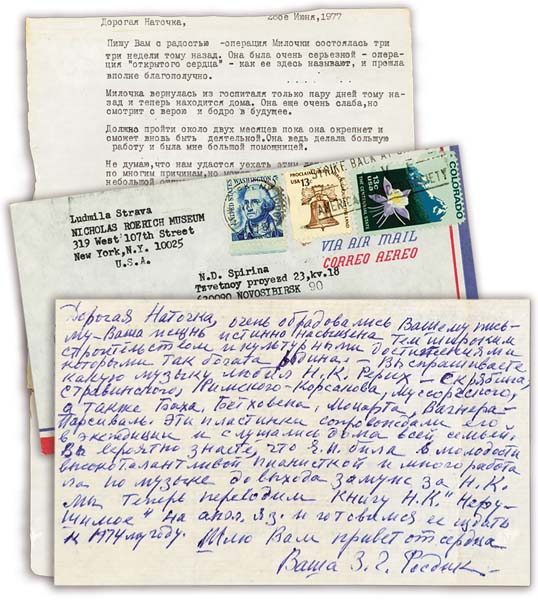 28ое Июня,1977
Дорогая Наточка,
Пишу Вам с радостью -операция Милочки состоялась три
три недели тому назад. Она была очень серьезной - опера-
ция "открытого сердца" - как ее здесь называют, и прошла
вполне благополучно.
Милочка вернулась из госпиталя только пару дней тому на-
зад и теперь находится дома. Она еще очень слаба,но
смотрит с верою и бодро в будущее.
Должно пройти около двух месяцев пока она окрепнет и
сможет вновь быть деятельной.Она ведь делала большую
работу и была мне большой помощницей.
Не думаю,что нам удастся уехать этим
по многим причинам,но может
небольшой
Ludmila Strava
NICHOLAS ROERICH MUSEUM
319 West 107th Street
New York,N.Y. 10025
U.S.A.
UNITED STATES WASHINGTON 5¢
PROCLAIM
USA 13c
STRIKE BACK AT
AMERICA
13c
COLORADO
VIA AIR MAIL
CORREO AEREO
N.D. Spirina
Tzvetnoy proyezd 23,kv.18
630090 NOVOSIBIRSK 90
Дорогая Наточка, очень обрадовались Вашему пись-
му-Ваша жизнь истинно насыщена тем широким
строительством и культурными достижениями
которыми так богата Родина. Вы спрашиваете
какую музыку любил Н.К. Рерих - Скрябина,
Стравинского, Римского-Корсакова, Муссоргского,
а также Баха, Бетховена, Моцарта, Вагнера-
Парсиваль. Эти пластинки сопровождали его
в экспедиции и слушались дома всей семьей.
Вы вероятно знаете, что Е.И. была в молодости
высокоталантливой пианисткой и много работа
ла по музыке до выхода замуж за Н.К.
Мы теперь переводим книгу Н.К. "Неру-
шимое" на англ. яз. и готовимся ее издать
к 1974му году. Шлю Вам привет от сердца
Ваша З. Г. Фосдик